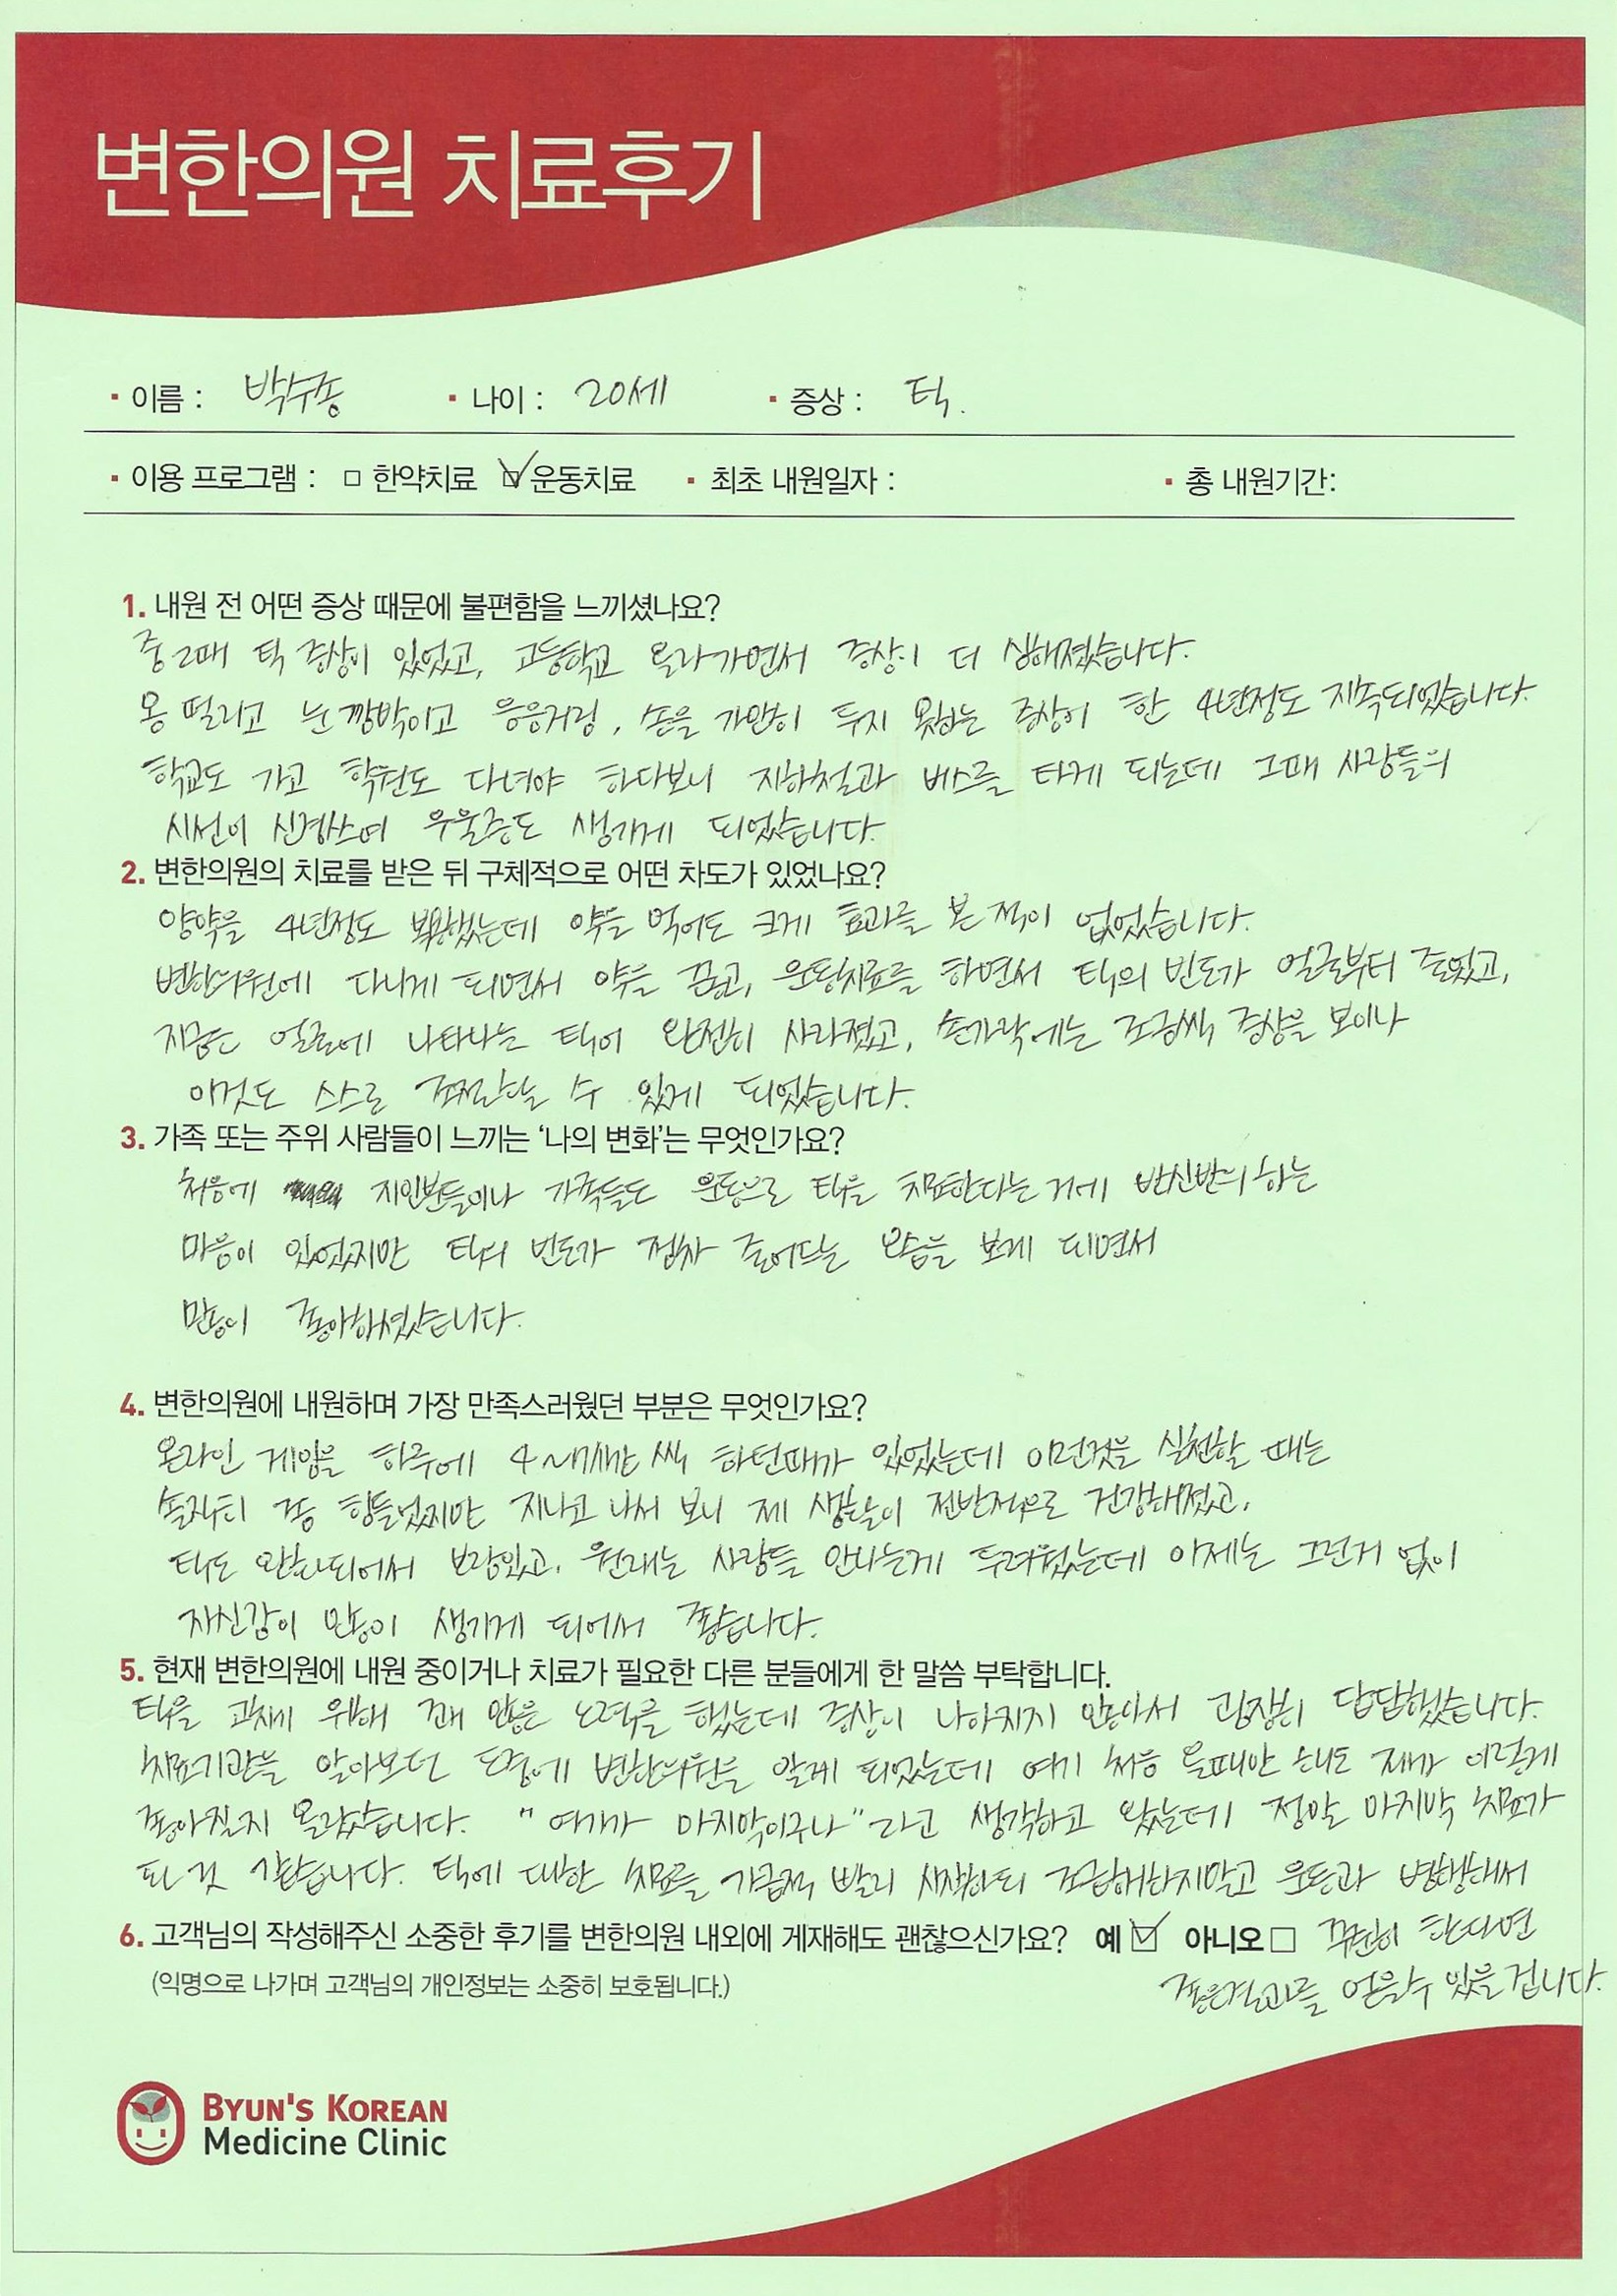 변한의원 치료후기
· 이름 : 박수종 · 나이 : 20세 · 증상 : 틱.
· 이용 프로그램 : □ 한약치료 ☑ 운동치료 · 최초 내원일자 : · 총 내원기간:
1. 내원 전 어떤 증상 때문에 불편함을 느끼셨나요?
중2때 틱 증상이 있었고, 고등학교 올라가면서 증상이 더 심해졌습니다.
몸 떨리고 눈 깜박이고 응응거림, 손을 가만히 두지 못하는 증상이 한 4년정도 지속되었습니다.
학교도 가고 학원도 다녀야 하다보니 지하철과 버스를 타게 되는데 그때 사람들의
시선이 신경쓰여 우울증도 생기게 되었습니다.
2. 변한의원의 치료를 받은 뒤 구체적으로 어떤 차도가 있었나요?
양약을 4년정도 복용했는데 약을 먹어도 크게 효과를 본 적이 없었습니다.
변한의원에 다니게 되면서 약을 끊고, 운동치료를 하면서 틱의 빈도가 얼굴부터 줄었고,
지금은 얼굴에 나타나는 틱이 완전히 사라졌고, 손가락에는 조금씩 증상을 보이나
이것도 스스로 조절할 수 있게 되었습니다.
3. 가족 또는 주위 사람들이 느끼는 ‘나의 변화’는 무엇인가요?
처음에 지인분들이나 가족들도 운동으로 틱을 치료한다는 거에 반신반의 하는
마음이 있었지만 틱의 빈도가 점차 줄어드는 모습을 보게 되면서
많이 좋아하셨습니다.
4. 변한의원에 내원하며 가장 만족스러웠던 부분은 무엇인가요?
온라인 게임을 하루에 4~ 씩 하던때가 있었는데 이런것을 실천할 때는
솔직히 좀 힘들었지만 지나고 나서 보니 제 생활이 전반적으로 건강해졌고,
틱도 완화되어서 보람있고, 원래는 사람들 만나는게 두려웠는데 이제는 그런거 없이
자신감이 많이 생기게 되어서 좋습니다.
5. 현재 변한의원에 내원 중이거나 치료가 필요한 다른 분들에게 한 말씀 부탁합니다.
틱을 고치기 위해 꽤 많은 노력을 했는데 증상이 나아지지 않아서 굉장히 답답했습니다.
치료기관을 알아보던 도중에 변한의원을 알게 되었는데 여기 처음 올때만 해도 제가 이렇게
좋아질지 몰랐습니다. "여기가 마지막이구나"라고 생각하고 왔는데 정말 마지막 치료가
된 것 같습니다. 틱에 대한 치료를 가급적 빨리 시작하되 조급해하지말고 운동과 병행해서
6. 고객님의 작성해주신 소중한 후기를 변한의원 내외에 게재해도 괜찮으신가요? 예 ☑ 아니오 □ 꾸준히 한다면
(익명으로 나가며 고객님의 개인정보는 소중히 보호됩니다.) 좋은결과를 얻을수 있을 겁니다.
BYUN'S KOREAN
Medicine Clinic